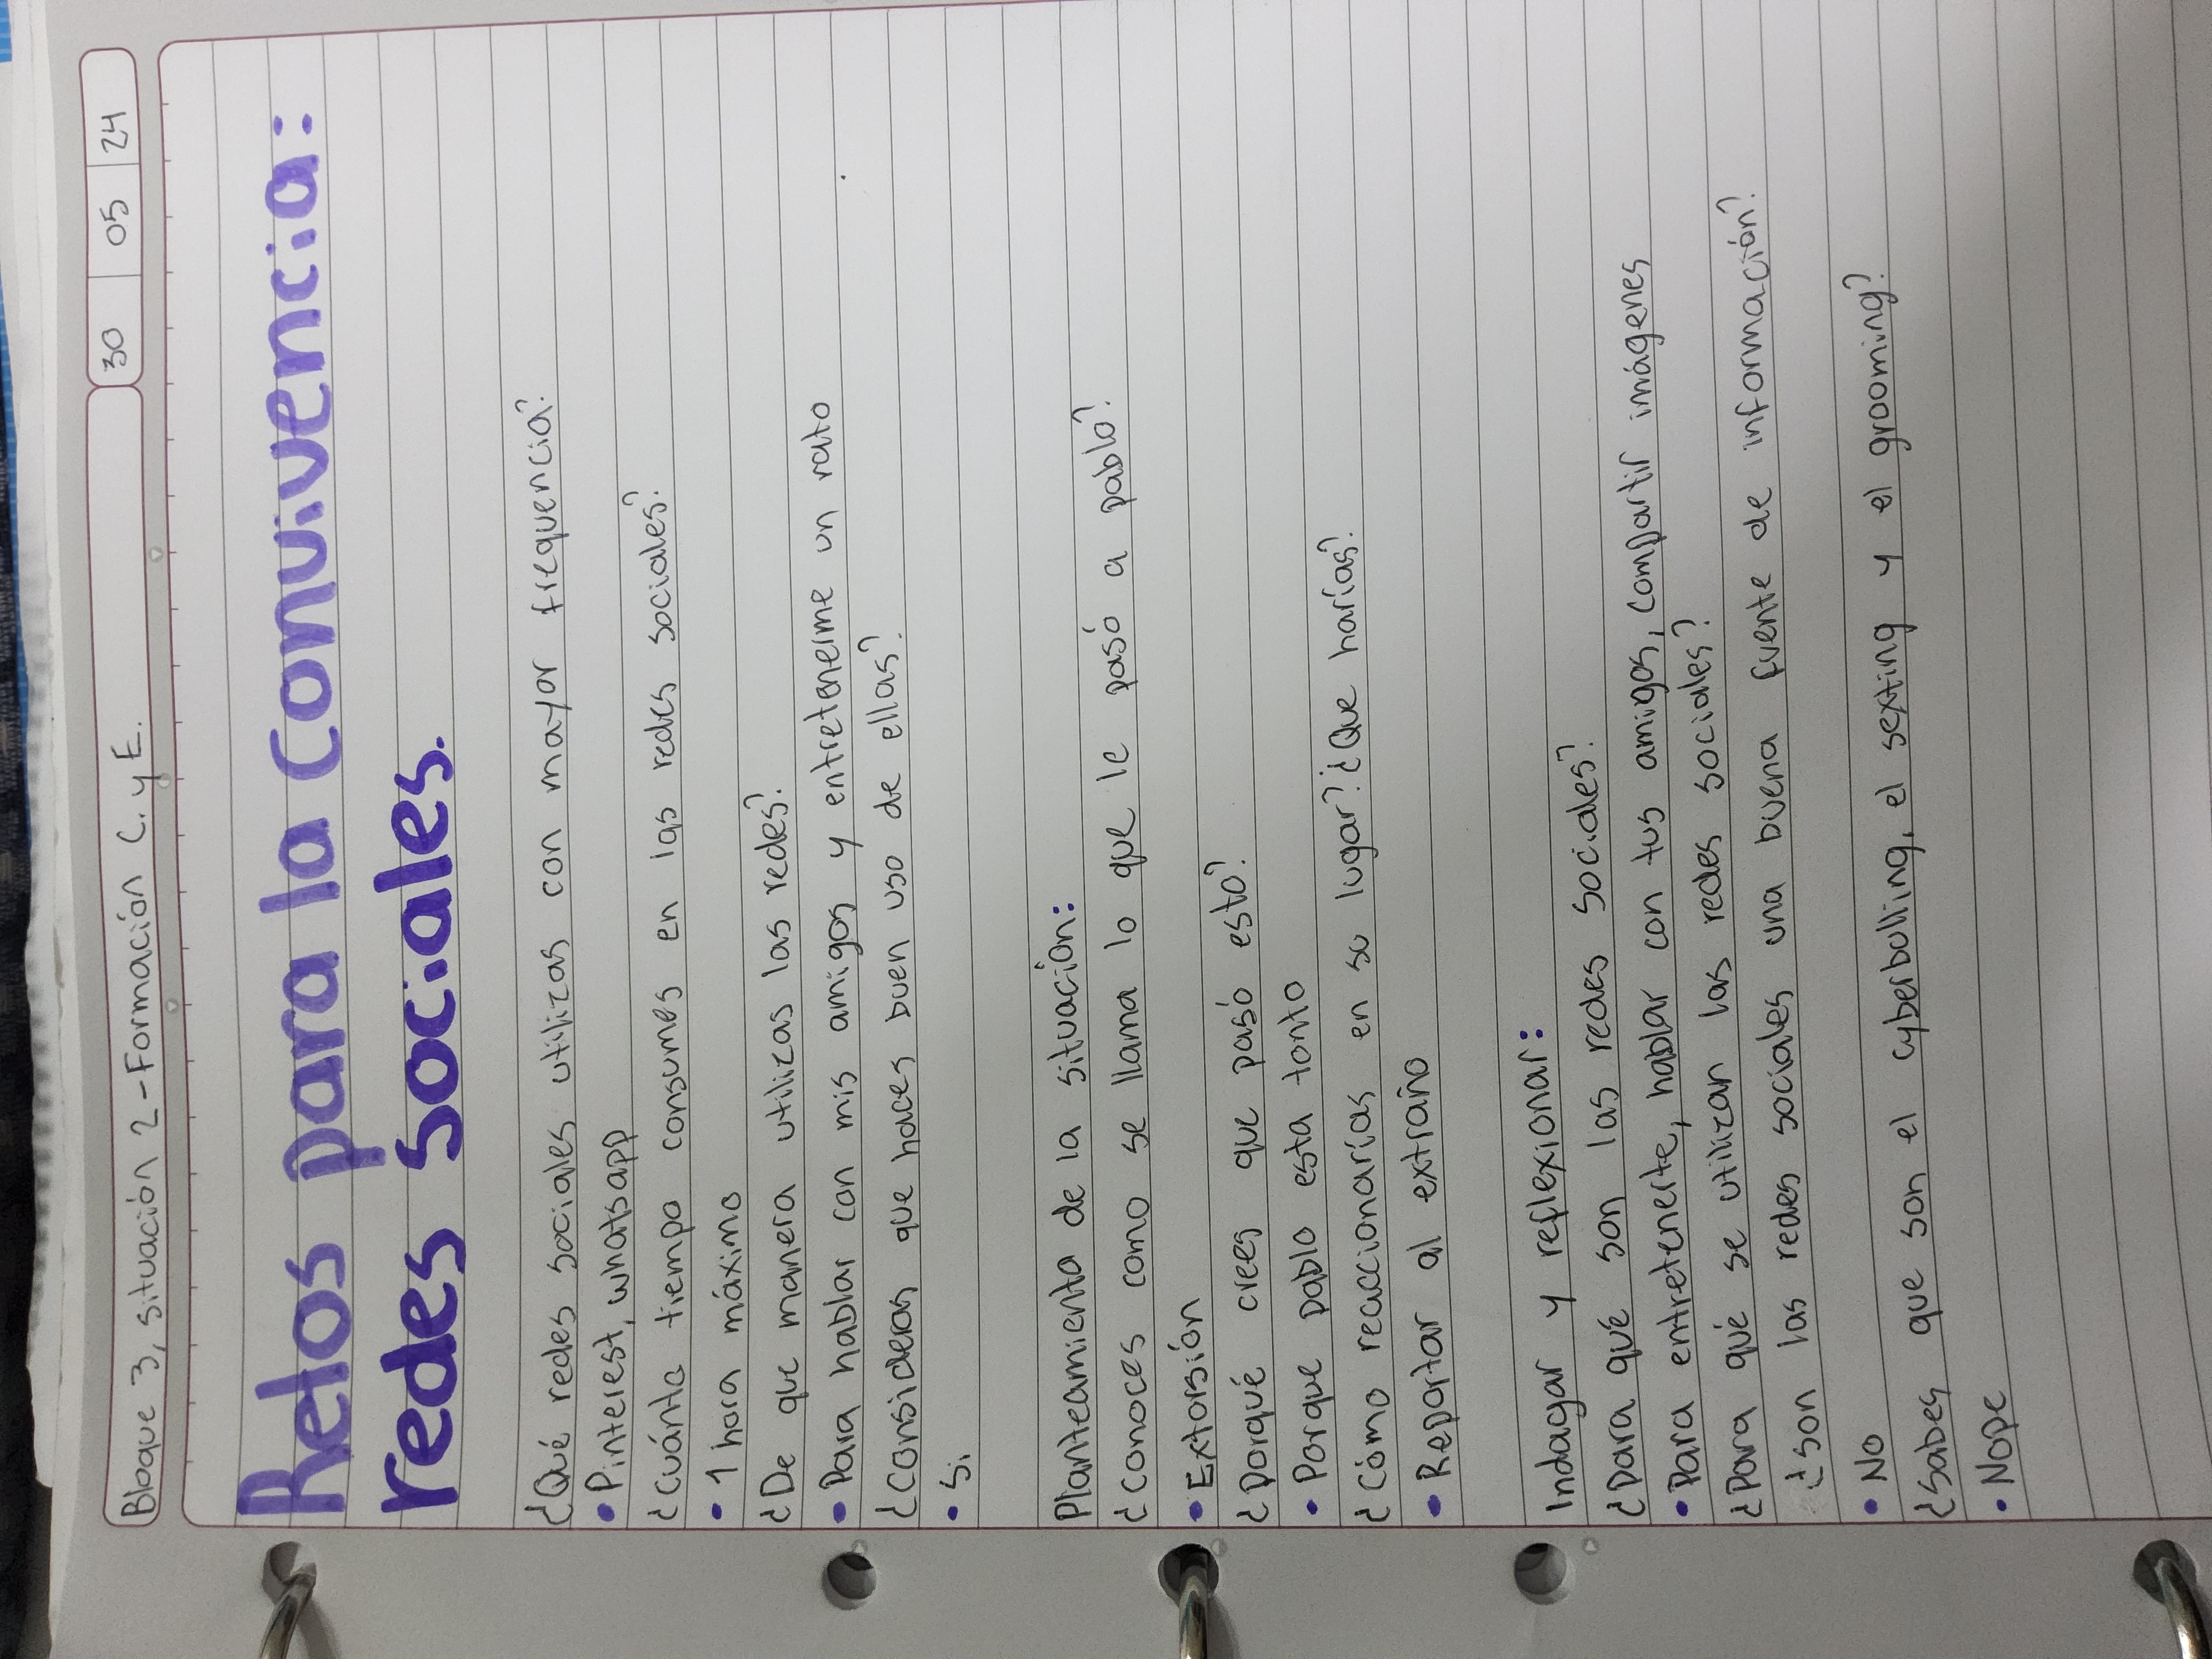 Bloque 3, situación 2-Formación C. y E.
30 05 24
Retos para la Convivencia:
redes sociales.
¿Qué redes sociales utilizas con mayor frequencia?
• Pinterest, whatsapp
¿cuánto tiempo consumes en las redes sociales?
• 1 hora máximo
¿De que manera utilizas las redes?
• Para hablar con mis amigos y entretenerme un rato
¿Consideras que haces buen uso de ellas?
• Si
Planteamiento de la situación:
¿conoces como se llama lo que le pasó a pablo?
• Extorsión
¿Porqué crees que pasó esto?
• Porque pablo esta tonto
¿Cómo reaccionarías en su lugar? ¿Que harías?
• Reportar al extraño
Indagar y reflexionar:
¿Para qué son las redes sociales?
• Para entretenerte, hablar con tus amigos, compartir imágenes
¿Para qué se utilizan las redes sociales?
¿son las redes sociales una buena fuente de información?
• No
¿Sabes que son el cyberbulling, el sexting y el grooming?
• Nope